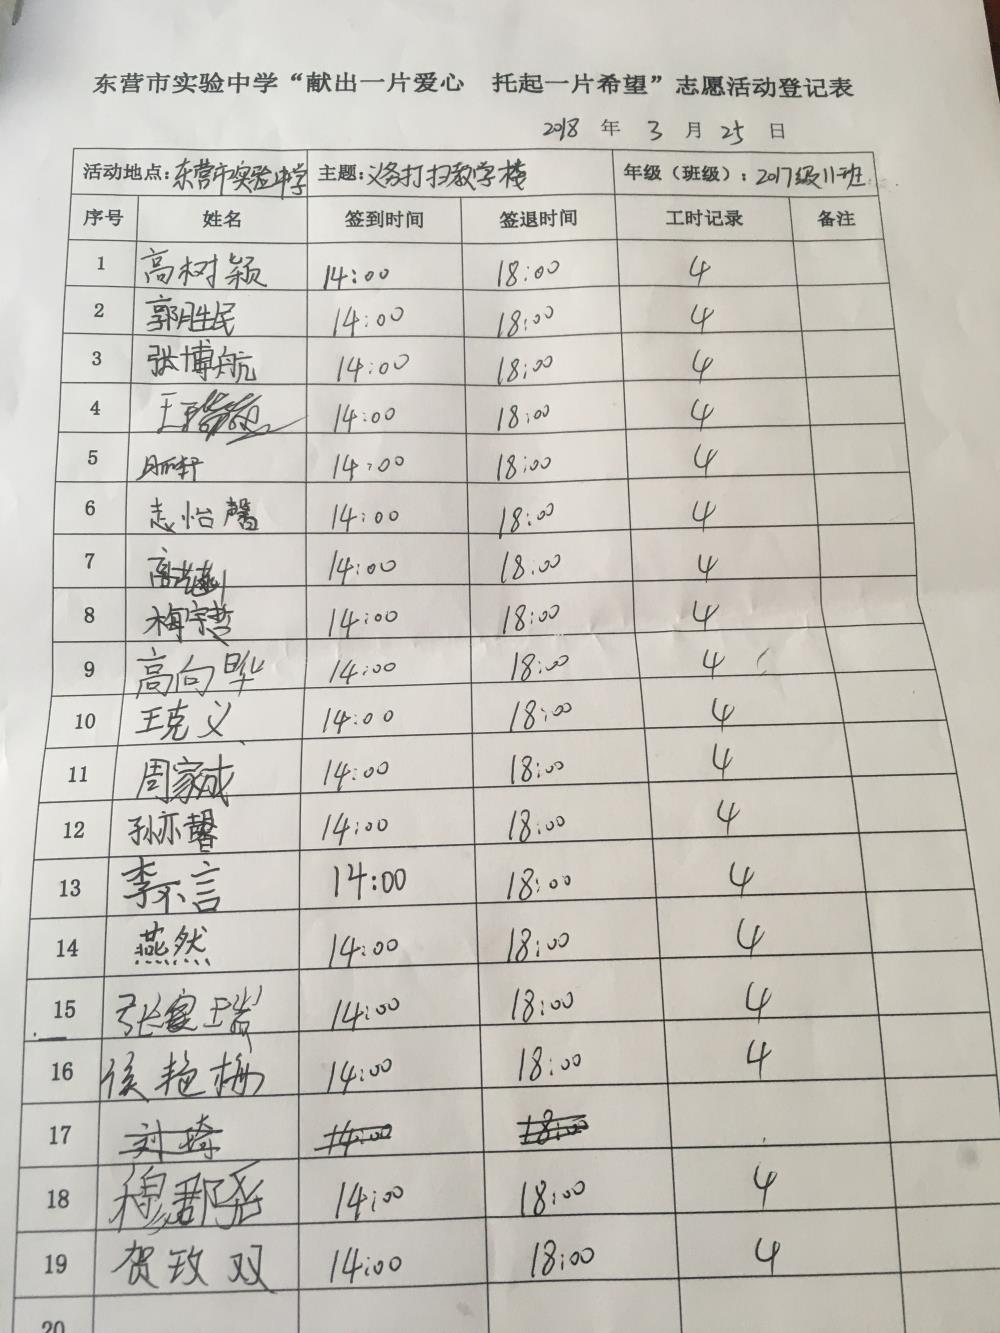 东营市实验中学“献出一片爱心 托起一片希望”志愿活动登记表
2018 年 3 月 25 日
活动地点:东营市实验中学 主题:义务打扫教学楼 年级（班级）：2017级11班
序号 姓名 签到时间 签退时间 工时记录 备注
1 高树颖 14:00 18:00 4
2 郭胜民 14:00 18:00 4
3 张博航 14:00 18:00 4
4 王 14:00 18:00 4
5 14:00 18:00 4
6 志怡馨 14:00 18:00 4
7 高 14:00 18:00 4
8 梅宗慧 14:00 18:00 4
9 高向晔 14:00 18:00 4
10 王克义 14:00 18:00 4
11 周家成 14:00 18:00 4
12 孙亦馨 14:00 18:00 4
13 李不言 14:00 18:00 4
14 燕然 14:00 18:00 4
15 张家瑞 14:00 18:00 4
16 侯艳梅 14:00 18:00 4
17 刘琦 14:00 18:00
18 穆郡 14:00 18:00 4
19 贺玫双 14:00 18:00 4
20